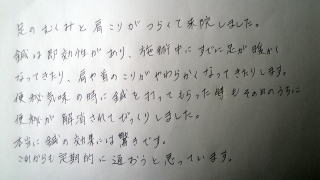 足のむくみと肩こりがつらくて来院しました。
鍼は即効性があり、施術中にすでに足が暖かく
なってきたり、肩や首のこりがやわらかくなってきたりします。
便秘気味の時に鍼を打ってもらった時もその日のうちに
便秘が解消されてびっくりしました。
本当に鍼の効果には驚きです。
これからも定期的に通おうと思っています。